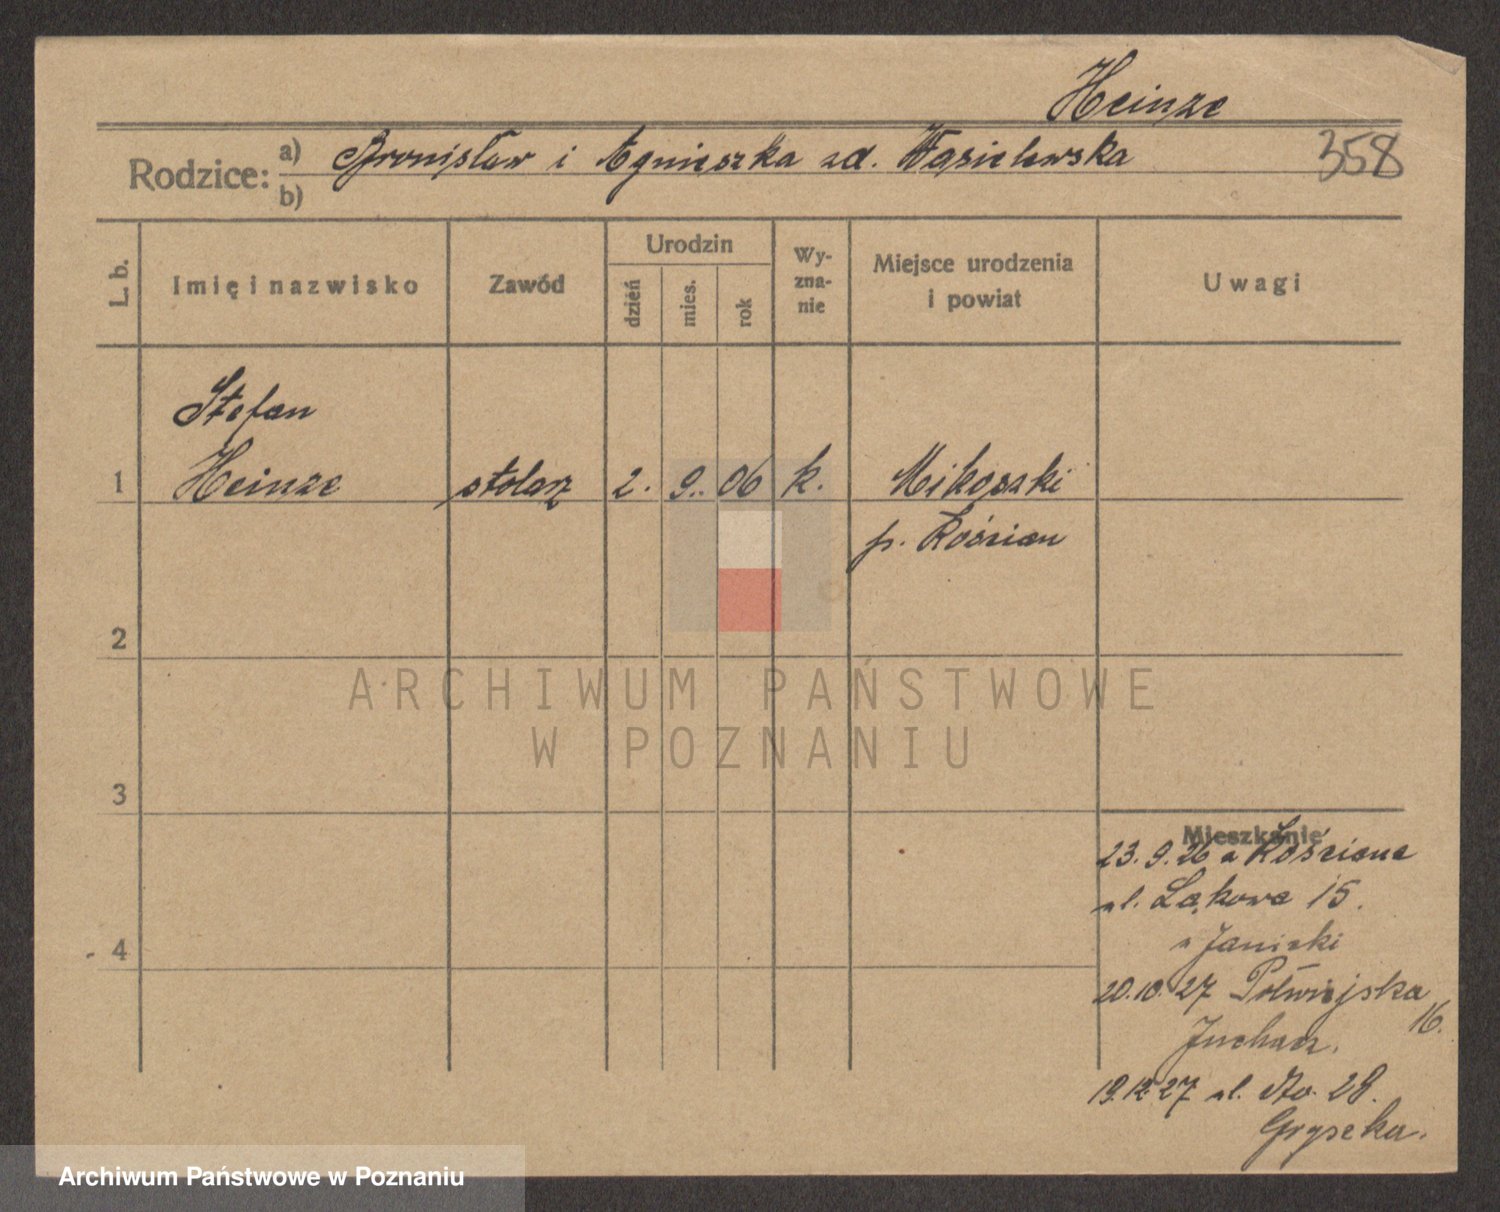 Heinze
Rodzice: a) Bronisław i Agnieszka zd. Wasielewska
358
b)
L. b.
Imię i nazwisko
Zawód
Urodzin
dzień
mies.
rok
Wy-
zna-
nie
Miejsce urodzenia
i powiat
Uwagi
Stefan
1 Heinze stolarz 2. 9. 06 k. Mikoszki
p. Kościan
2
ARCHIWUM PAŃSTWOWE
W POZNANIU
3
Mieszkanie
23. 9. 26 z Kościana
ul. Łąkowa 15.
u Janicki
4
20.10.27 Półwiejska
16.
Juchacz.
19.12.27 ul. 28.
Gryszka.
Archiwum Państwowe w Poznaniu